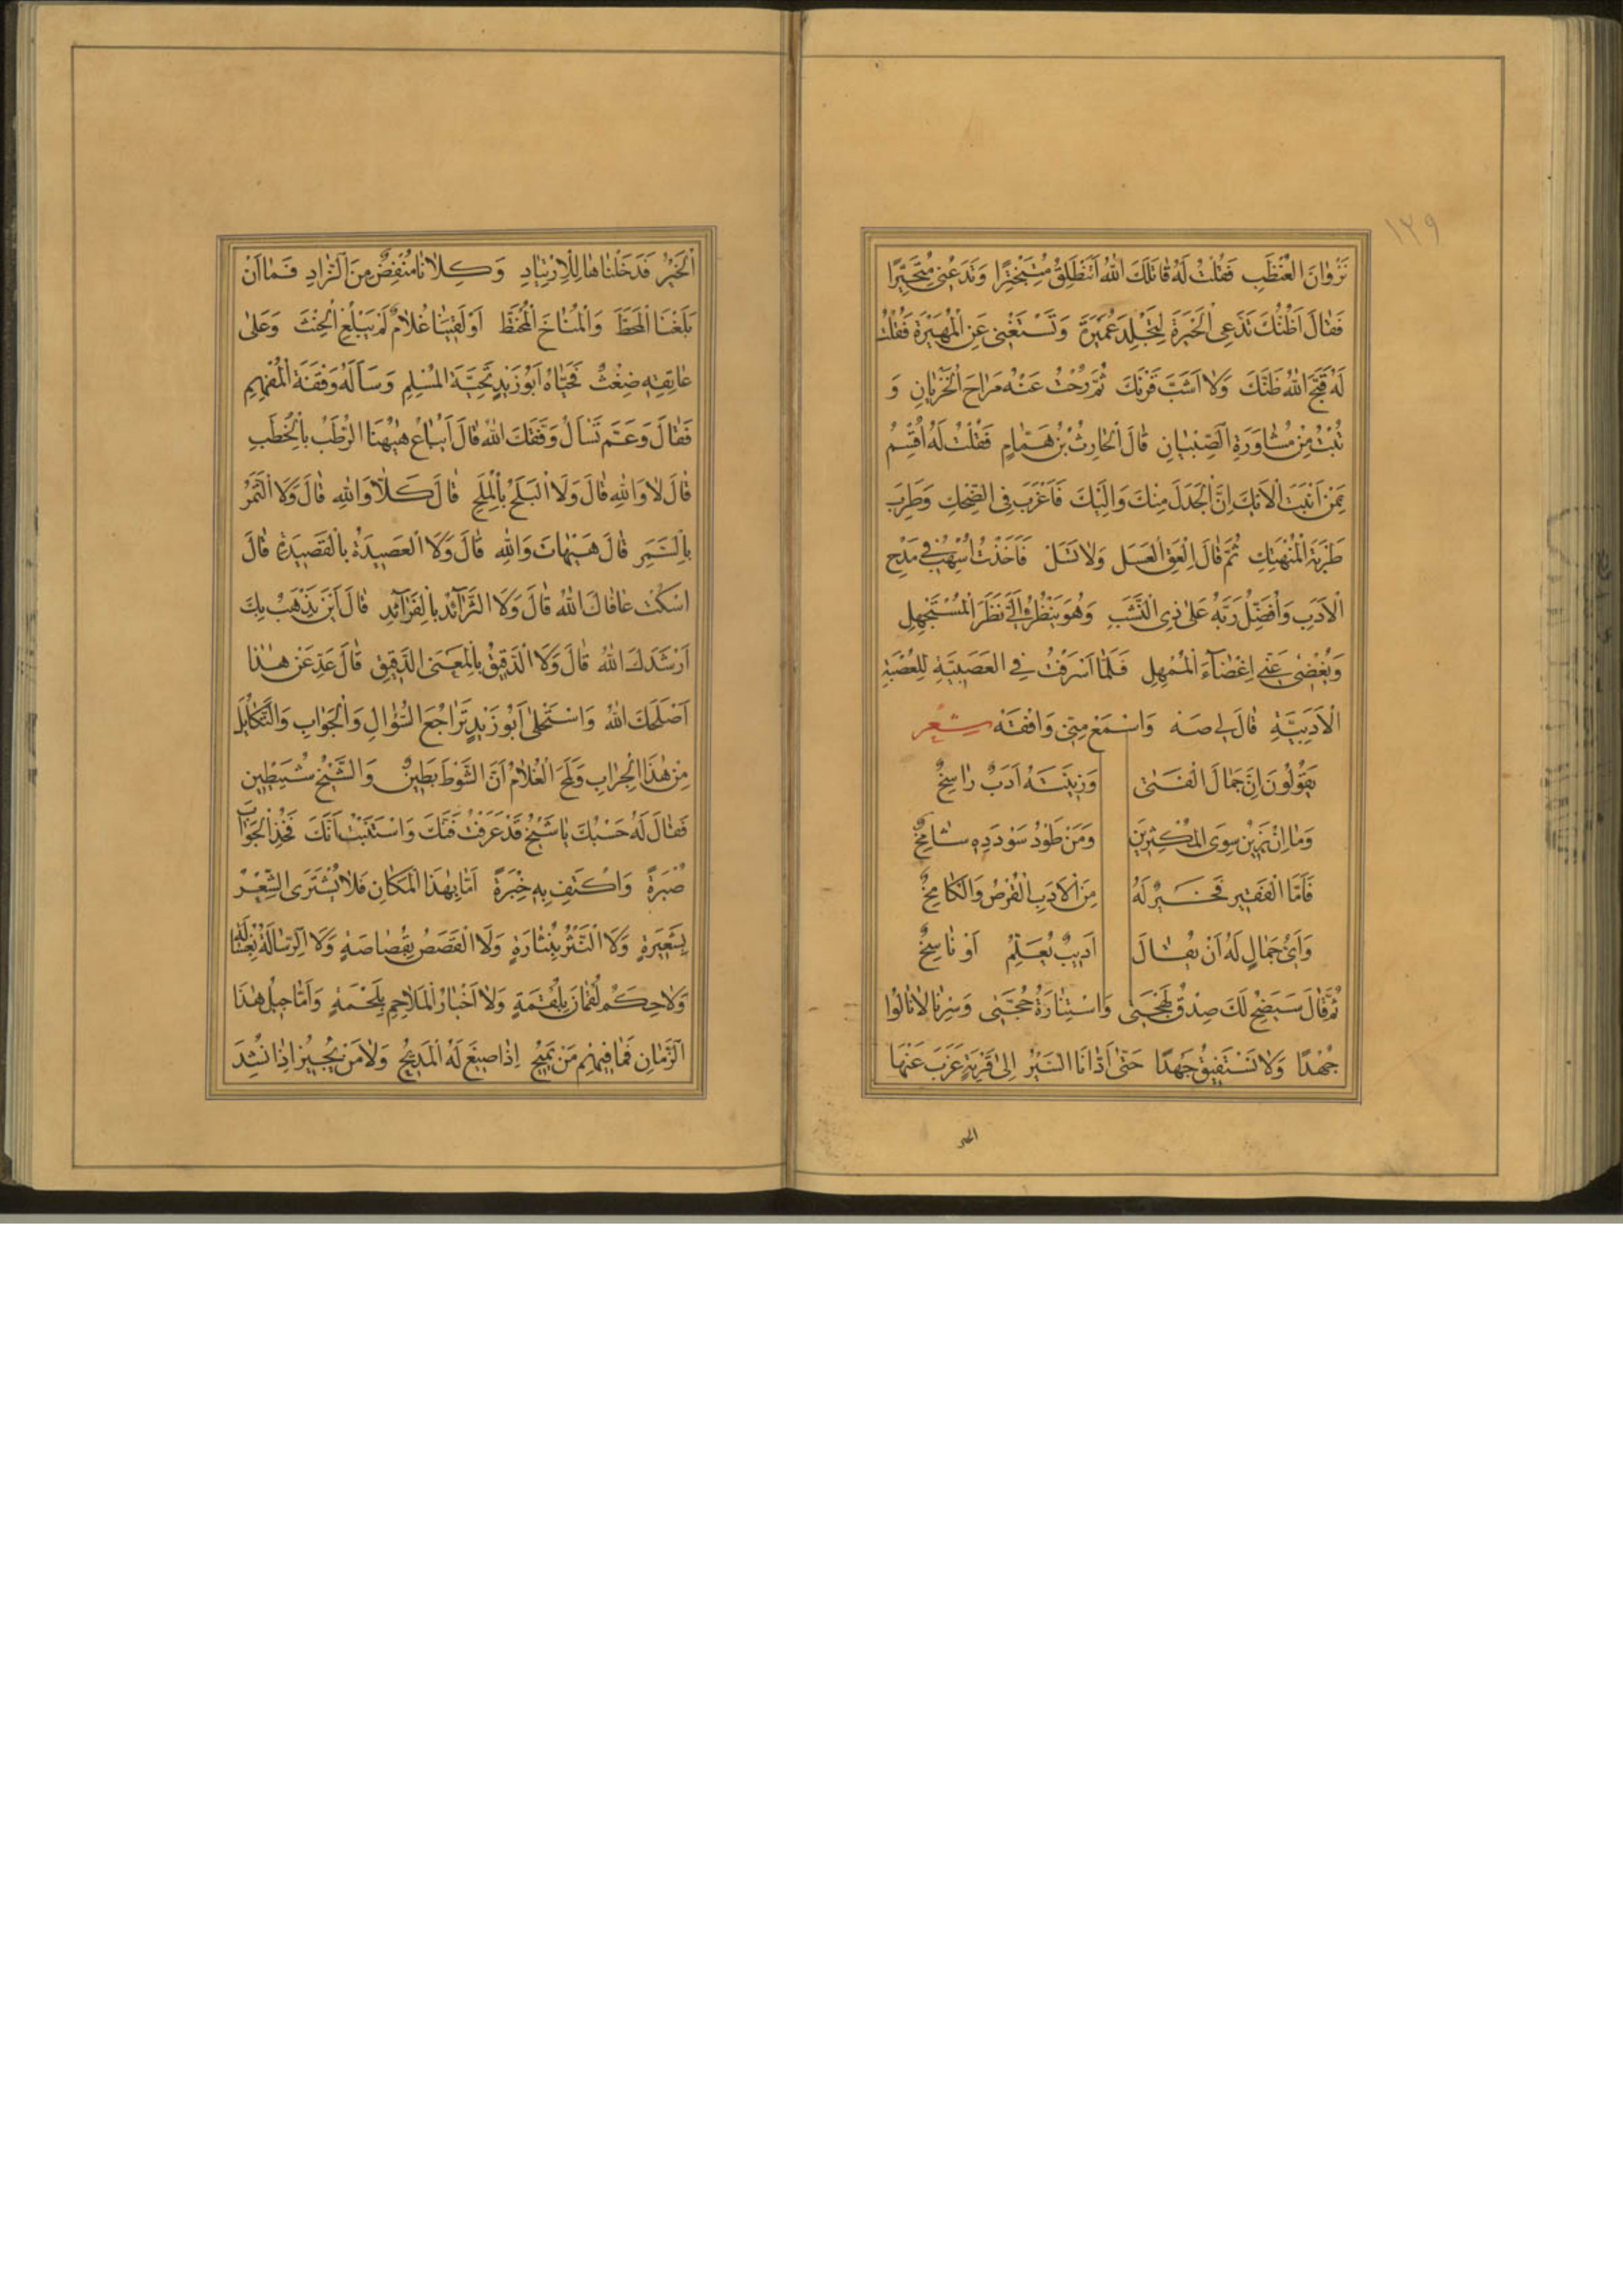 ١٢٩
نَزَوَانَ الْعُنْظَبِ فَقُلْتُ لَهُ قَاتَلَكَ اللهُ أَتَنْطَلِقُ مُتَبَخْتِرًا وَتَدَعُنِي مُتَحَيِّرًا
فَقَالَ أَظُنُّكَ تَدَّعِي الْخَبْرَةَ لِتَجْلِدَ عُمَيْرَةَ وَتَسْتَغْنِيَ عَنِ الْمُهَيْرَةِ فَقُلْتُ
لَهُ قَبَّحَ اللهُ ظَنَّكَ وَلَا أَشَبَّ قَرْنَكَ ثُمَّ رُحْتُ عَنْهُ مَرَاحَ الْخَزْيَانِ وَ
تُبْتُ مِنْ مُشَاوَرَةِ الصِّبْيَانِ قَالَ الْحَارِثُ بْنُ هَمَّامٍ فَقُلْتُ لَهُ أُقْسِمُ
بِمَنْ أَنْبَتَ الْأَيْكَ إِنَّ الْجَدَلَ مِنْكَ وَإِلَيْكَ فَأَغْرَبَ فِي الضِّحْكِ وَطَرِبَ
طَرْبَةَ الْمُنْهَمِكِ ثُمَّ قَالَ الْعَقِ الْعَسَلَ وَلَا تَسَلْ فَأَخَذْتُ أُسْهِبُ فِي مَدْحِ
الْأَدَبِ وَأُفَضِّلُ رَبَّهُ عَلَى ذِي النَّشَبِ وَهُوَ يَنْظُرُ إِلَيَّ نَظَرَ الْمُسْتَجْهِلِ
وَيُغْضِي عَنِّي إِغْضَاءَ الْمُمْهِلِ فَلَمَّا أَسْرَفْتُ فِي الْعَصَبِيَّةِ لِلْعُصْبَةِ
الْأَدَبِيَّةِ قَالَ لِي صَهْ وَاسْمَعْ مِنِّي وَافْقَهْ شعر
يَقُولُونَ إِنَّ جَمَالَ الْفَتَى وَزِينَتَهُ أَدَبٌ رَاسِخٌ
وَمَا إِنْ يَزِينُ سِوَى الْمُكْثِرِينَ وَمَنْ طَوْدُ سَوْدَدِهِ شَامِخٌ
فَأَمَّا الْفَقِيرُ فَخَيْرٌ لَهُ مِنَ الْأَدَبِ الْقُرْصُ وَالْكَامِخُ
وَأَيُّ جَمَالٍ لَهُ أَنْ يُقَالَ أَدِيبٌ يُعَلِّمُ أَوْ نَاسِخٌ
ثُمَّ قَالَ سَيَضِحُ لَكَ صِدْقُ لَهْجَتِي وَاسْتِنَارَةُ حُجَّتِي وَسِرْنَا لَا نَأْلُوا
جُهْدًا وَلَا نَسْتَفِيقُ جَهْدًا حَتَّى أَدَّانَا السَّيْرُ إِلَى قَرْيَةٍ عَزَبَ عَنْهَا
الخير
الْخَيْرُ فَدَخَلْنَاهَا لِلِارْتِيَادِ وَكِلَانَا مُنْفِضٌ مِنَ الزَّادِ فَمَا أَنْ
بَلَغْنَا الْمَحَطَّ وَالْمُنَاخَ الْمُخْتَطَّ أَوْ لَقِيَنَا غُلَامٌ لَمْ يَبْلُغِ الْحِنْثَ وَعَلَى
عَاتِقِهِ ضِغْثٌ فَحَيَّاهُ أَبُو زَيْدٍ تَحِيَّةَ الْمُسْلِمِ وَسَأَلَهُ وَقْفَةَ الْمُفْهِمِ
فَقَالَ وَعَمَّ تَسْأَلُ وَفَّقَكَ اللهُ قَالَ أَيُبَاعُ هٰهُنَا الرُّطَبُ بِالْخُطَبِ
قَالَ لَا وَاللهِ قَالَ وَلَا الْبَلَحُ بِالْمُلَحِ قَالَ كَلَّا وَاللهِ قَالَ وَلَا الثَّمَرُ
بِالسَّمَرِ قَالَ هَيْهَاتَ وَاللهِ قَالَ وَلَا الْعَصِيدَةُ بِالْقَصِيدَةِ قَالَ
اسْكُتْ عَافَاكَ اللهُ قَالَ وَلَا الثَّرَائِدُ بِالْفَرَائِدِ قَالَ أَيْنَ يَذْهَبُ بِكَ
أَرْشَدَكَ اللهُ قَالَ وَلَا الدَّقِيقُ بِالْمَعْنَى الدَّقِيقِ قَالَ عَدِّ عَنْ هٰذَا
أَصْلَحَكَ اللهُ وَاسْتَحْلَى أَبُو زَيْدٍ تَرَاجُعَ السُّؤَالِ وَالْجَوَابِ وَالتَّكَايُلَ
مِنْ هٰذَا الْجِرَابِ وَلَمَحَ الْغُلَامُ أَنَّ الشَّوْطَ بَطِينٌ وَالشَّيْخَ شُيَيْطِينٌ
فَقَالَ لَهُ حَسْبُكَ يَا شَيْخُ قَدْ عَرَفْتُ فَنَّكَ وَاسْتَبَنْتُ أَنَّكَ فَخُذِ الْجَوَابَ
صُبْرَةً وَاكْتَفِ بِهِ خِبْرَةً أَمَّا بِهٰذَا الْمَكَانِ فَلَا يُشْتَرَى الشِّعْرُ
بِشَعِيرَةٍ وَلَا النَّثْرُ بِنُثَارَةٍ وَلَا الْقَصَصُ بِقُصَاصَةٍ وَلَا الرِّسَالَةُ بِغُسَالَةٍ
وَلَا حِكَمُ لُقْمَانَ بِلُقْمَةٍ وَلَا أَخْبَارُ الْمَلَاحِمِ بِلَحْمَةٍ وَأَمَّا جِيلُ هٰذَا
الزَّمَانِ فَمَا فِيهِمْ مَنْ يَمِيحُ إِذَا صِيغَ لَهُ الْمَدِيحُ وَلَا مَنْ يُجِيزُ إِذَا نُشِدَ